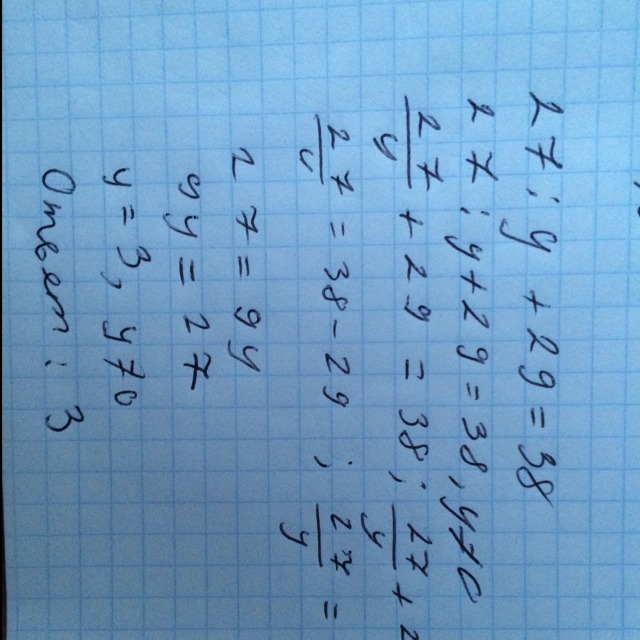 2x : y + 29 = 38
2x : y + 29 = 38, y ≠ 0
2x/y + 29 = 38; 2x/y + 2
2x/y = 38 - 29; 2x/y =
2x = 9y
9y = 2x
y = 3, y ≠ 0
Ответ: 3